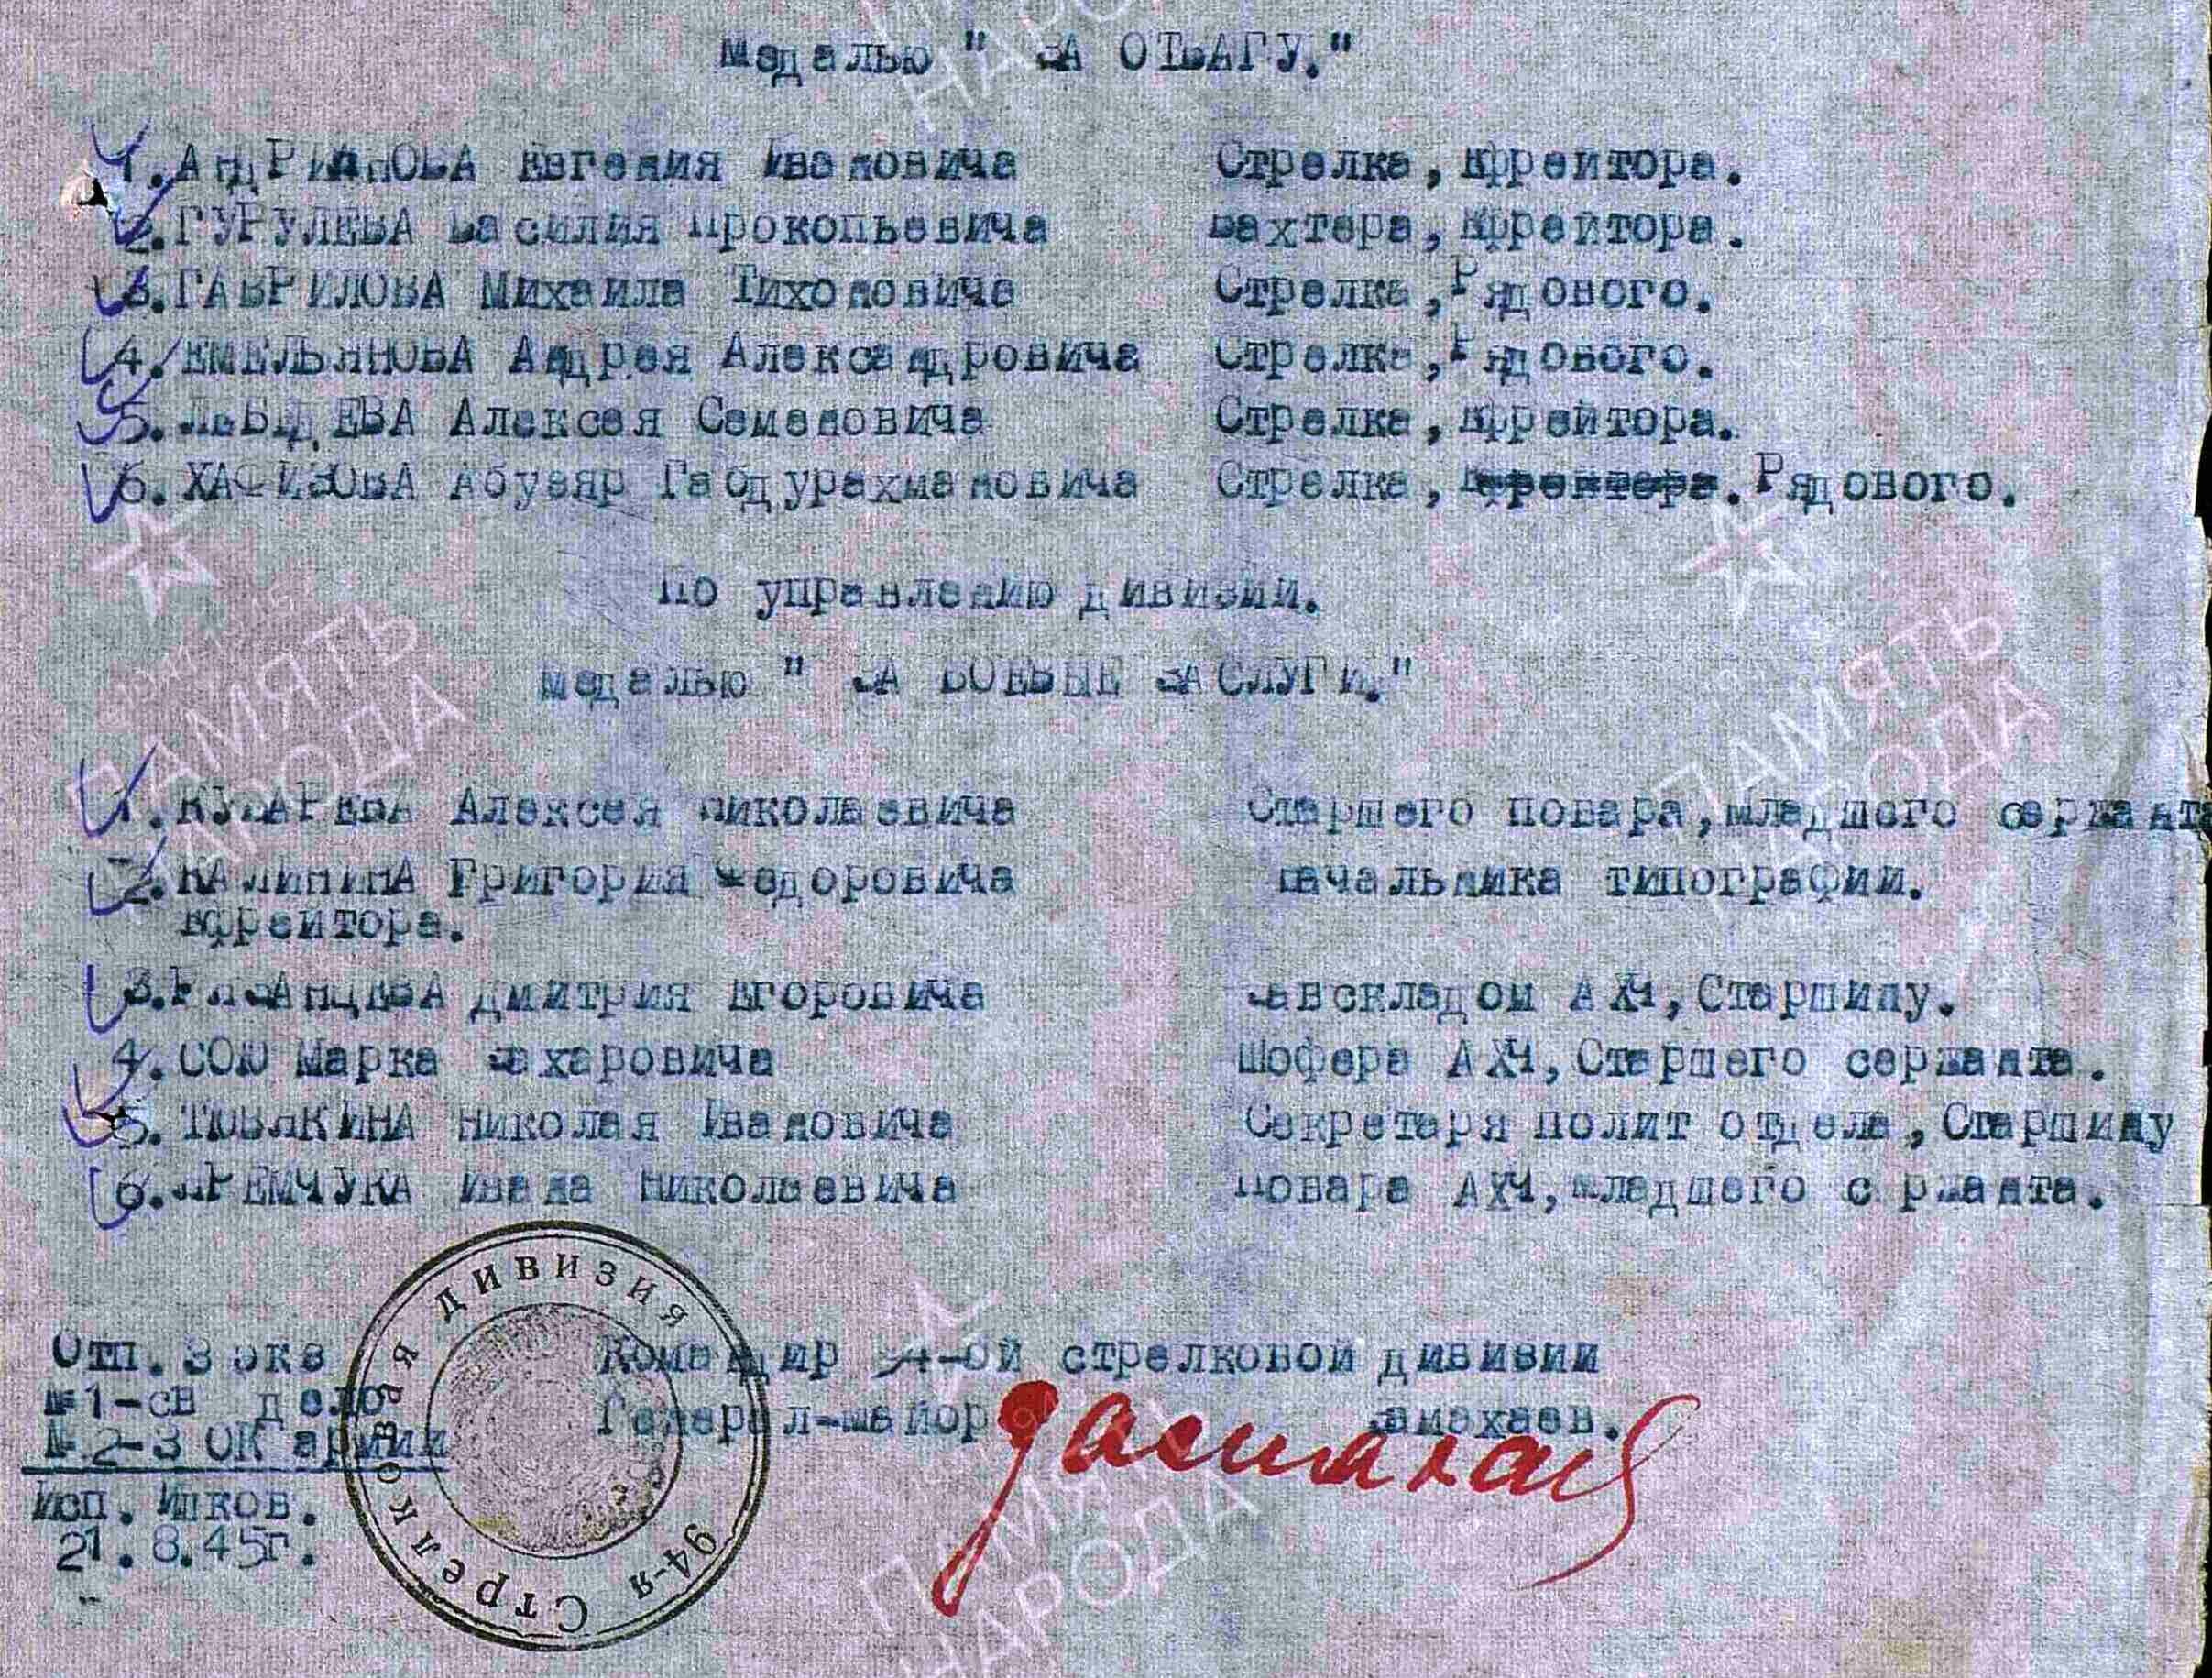 медалью " ЗА ОТВАГУ."
1. АНДРИАНОВА Евгения Ивановича Стрелка, Ефрейтора.
2. ГУРУЛЕВА Василия Прокопьевича Вахтера, Ефрейтора.
3. ГАВРИЛОВА Михаила Тихоновича Стрелка, Рядового.
4. ЕМЕЛЬЯНОВА Андрея Александровича Стрелка, Рядового.
5. ЛЕБЕДЕВА Алексея Семеновича Стрелка, Ефрейтора.
6. ХАФИЗОВА Абузяр Габдурахмановича Стрелка, Ефрейтора. Рядового.
По управлению дивизии.
медалью " ЗА БОЕВЫЕ ЗАСЛУГИ."
1. Алексея Николаевича Старшего повара, младшего сержант
2. КАЛИНИНА Григория Федоровича Начальника типографии.
Ефрейтора.
3. РЯЗАНЦЕВА Дмитрия Егоровича Завскладом АХЧ, Старшину.
4. СОЮ Марка Захаровича Шофера АХЧ, Старшего сержанта.
5. ТЮВЯКИНА Николая Ивановича Секретаря полит отдела, Старшину
6. ЯРЕМЧУКА Ивана Николаевича Повара АХЧ, младшего с ржанта.
Отп. 3 экз Командир 94-ой стрелковой дивизии
№1-св дело Генерал-майор Замахаев.
№ 2-3 ОК армии
Исп. Ишков.
21.8.45г.
94-я Стрелковая дивизия
ПАМЯТЬ
НАРОДА